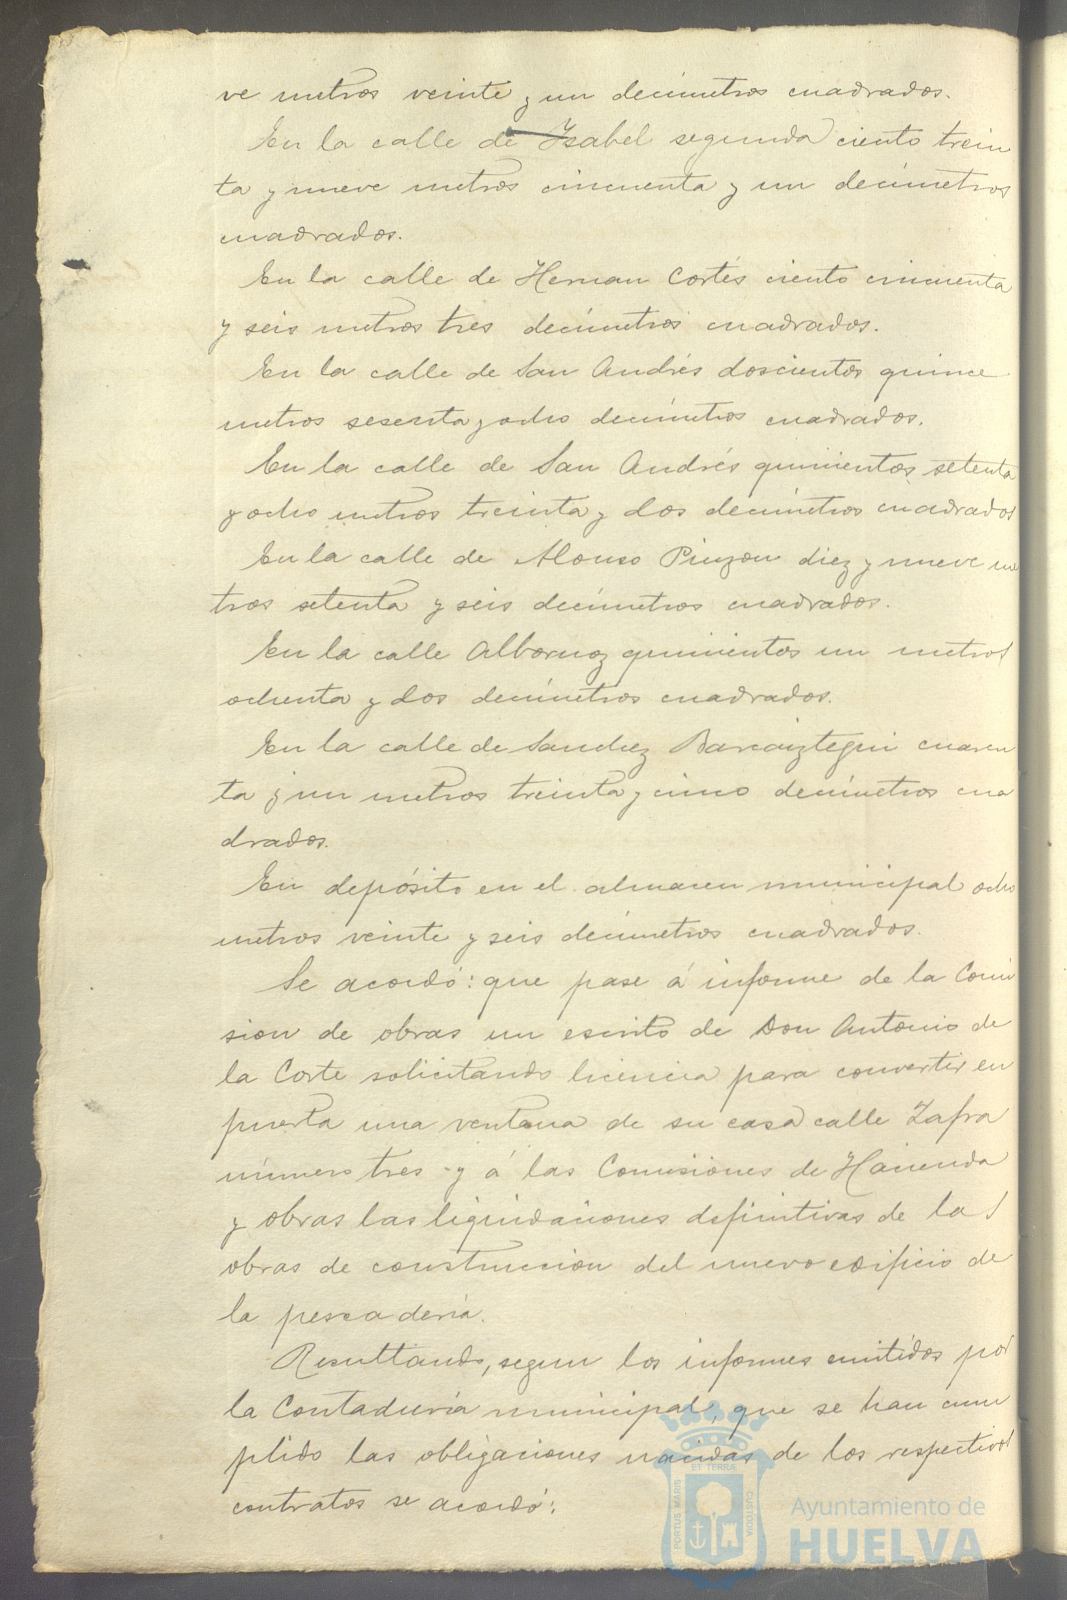 ve metros veinte y un decímetros cuadrados.
En la calle de Isabel segunda ciento trein
ta y nueve metros cincuenta y un decímetros
cuadrados.
En la calle de Hernan Cortés ciento cincuenta
y seis metros tres decímetros cuadrados.
En la calle de San Andrés doscientos quince
metros sesenta y ocho decímetros cuadrados.
En la calle de San Andrés quinientos setenta
y ocho metros treinta y dos decímetros cuadrados
En la calle de Alonso Pinzon diez y nueve me
tros setenta y seis decímetros cuadrados.
En la calle Albornoz quinientos un metros
ochenta y dos decímetros cuadrados.
En la calle de Sanchez Barcaiztegui cuaren
ta y un metros treinta y cinco decímetros cua
drados.
En depósito en el almacen municipal ocho
metros veinte y seis decímetros cuadrados.
Se acordó: que pase á informe de la Comi
sion de obras un escrito de Don Antonio de
la Corte solicitando licencia para convertir en
puerta una ventana de su casa calle Zafra
número tres y á las Comisiones de Hacienda
y obras las liquidaciones definitivas de las
obras de construccion del nuevo edificio de
la pescadería.
Resultando, segun los informes emitidos por
la Contaduría municipal, que se han cum
plido las obligaciones nacidas de los respectivos
contratos se acordó:
PORTUS MARIS ET TERRA CUSTODIA
Ayuntamiento de
HUELVA